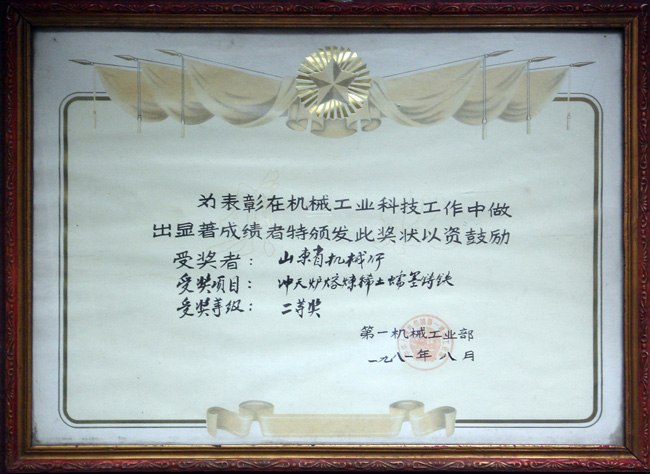 为表彰在机械工业科技工作中做
出显著成绩者特颁发此奖状以资鼓励
受奖者：山东省机械所
受奖项目：冲天炉熔炼稀土蠕墨铸铁
受奖等级：二等奖
第一机械工业部
一九八一年八月